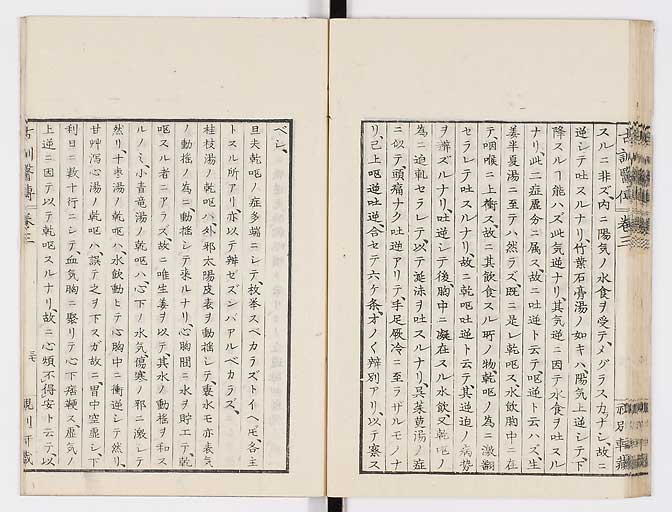 スルニ非ズ、内ニ陽気ノ水食ヲ受テ、メグラス力ナシ、故ニ
逆シテ吐スルナリ、竹葉石膏湯ノ如キハ陽気上逆シテ、下
降スルヿ能ハズ、此気逆ナリ、其気逆ニ因テ水食ヲ吐スル
ナリ、此二症厳分ニ属ス、故ニ吐逆ト云テ呕逆ト云ハズ、生
姜半夏湯ニ至テハ然ラズ、既ニ是レ乾呕ス、水飲胸中ニ在
テ、咽喉ニ上衝ス、故ニ其飲食スル所ノ物、乾呕ノ為ニ激翻
セラレテ吐スルナリ、故ニ乾呕吐逆ト云テ其逆迫ノ病勢
ヲ辨ズルナリ、吐逆シテ後、胸中ニ凝在スル水飲又乾呕ノ
為ニ迫軋セラレテ、以テ涎沫ヲ吐スルナリ、呉茱萸湯ノ症
ニ似テ、頭痛ナク吐逆アリテ、手足厥冷ニ至ラザルモノナ
リ、已上呕逆吐逆、合セテ六ケ条、才ノく辨別アリ、以テ察ス
古訓醫傳 巻三
ベシ、
且夫乾呕ノ症多端ニシテ枚挙スベカラズトイヘ𪜈各主
トスル所アリ、亦以テ辨セズンバアルベカラズ、
桂枝湯ノ乾呕ハ外邪太陽皮表ヲ動揺シテ、裏水モ亦表気
ノ動揺ノ為ニ、動揺シテ来ルナリ、心胸間ニ水ヲ貯エテ、乾
呕スル者ニアラズ、故ニ唯生姜ヲ以テ、其水ノ動揺ヲ和ス
ルノミ、小青竜湯ノ乾呕ハ、心下ノ水気、傷寒ノ邪ニ激シテ
然リ、十枣湯ノ乾呕ハ、水飲動ヒテ心胸中ニ衝逆シテ然リ、
甘艸瀉心湯ノ乾呕ハ、誤テ之ヲ下スガ故ニ、胃中空虚シ、下
利日ニ数十行ニシテ、血気胸ニ聚リテ心下痞鞕ス、虚気ノ
上逆ニ因テ、以テ乾呕スルナリ、故ニ心煩不得安ト云テ、以
古訓醫傳 巻三